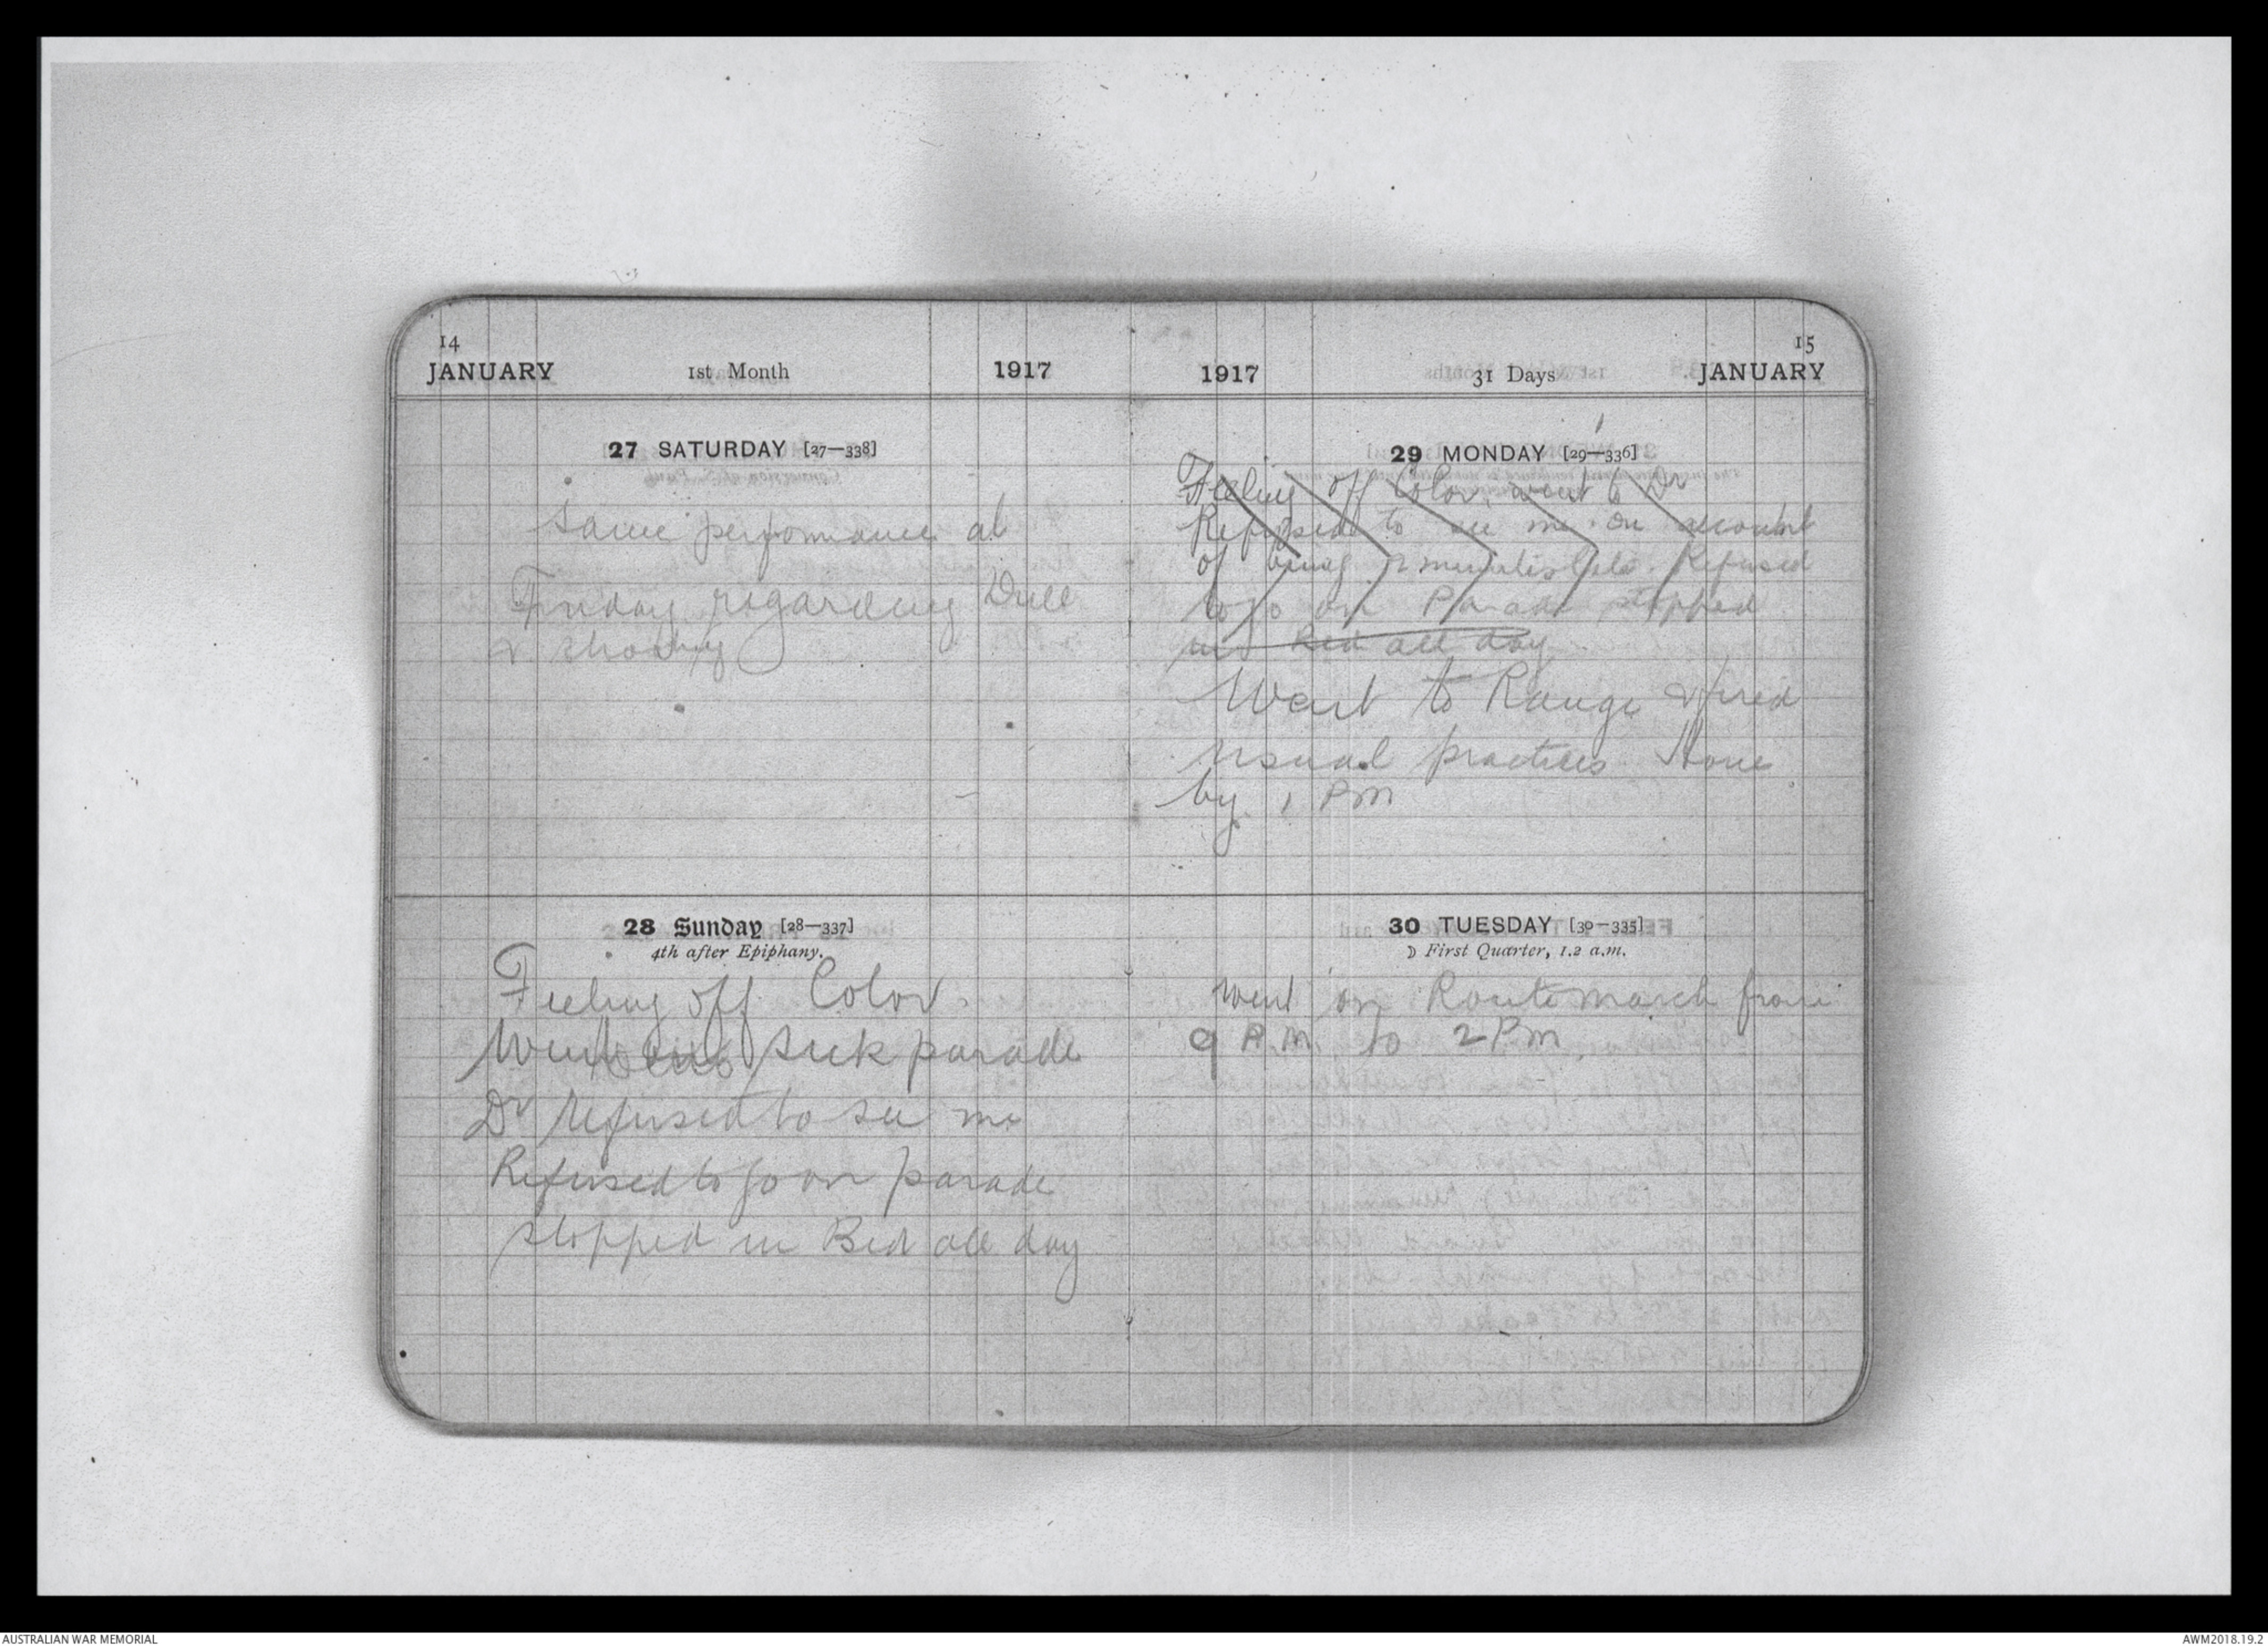 14
JANUARY 1st Month 1917
27 SATURDAY [27—338]
Same performance as
Friday regarding Drill
& shooting
28 Sunday [28—337]
4th after Epiphany.
Feeling off Color.
Went sick parade
Dr refused to see me
Refused to go on parade
stopped in Bed all day
15
1917 31 Days JANUARY
29 MONDAY [29—336]
Feeling off Color. went to Dr
Refused to see me on account
of being Refused
to go on Parade stopped
in Bed all day
Went to Range & fired
usual practices Home
by 1 PM
30 TUESDAY [30—335]
☽ First Quarter, 1.2 a.m.
went on Route march from
9 A.M. to 2 PM.
AUSTRALIAN WAR MEMORIAL
AWM2018.19.2